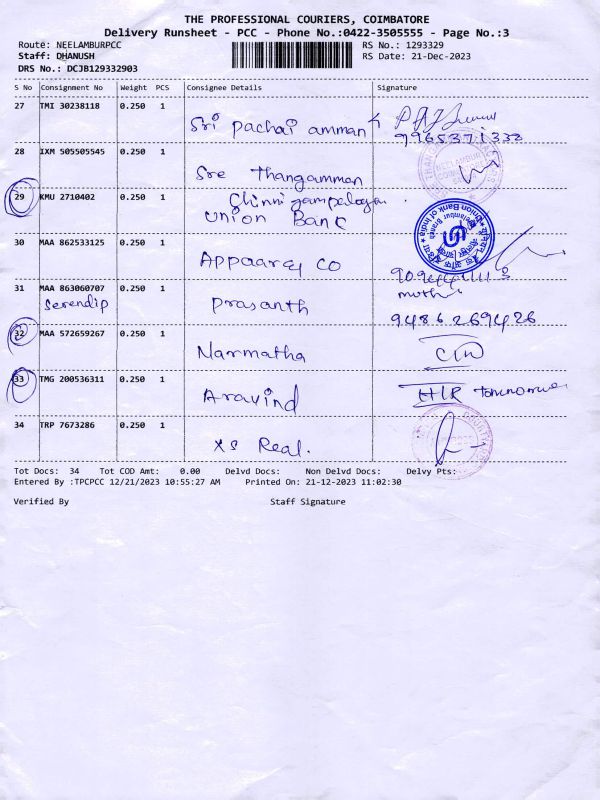 THE PROFESSIONAL COURIERS, COIMBATORE
Delivery Runsheet - PCC - Phone No.:0422-3505555 - Page No.:3
Route: NEELAMBURPCC RS No.: 1293329
Staff: DHANUSH RS Date: 21-Dec-2023
DRS No.: DCJB129332903
S No Consignment No Weight PCS Consignee Details Signature
27 TMI 30238118 0.250 1
Sri pachai amman
9965371332
28 IXM 505505545 0.250 1
Sre Thangamman
29 KMU 2710402 0.250 1
Union Bank
Union Bank of India
Neelambur Branch
30 MAA 862533125 0.250 1
Appaarey CO
31 MAA 863060707 0.250 1
Serendip Prasanth
9486269426
32 MAA 572659267 0.250 1
Narmatha
33 TMG 200536311 0.250 1
Aravind
34 TRP 7673286 0.250 1
XS Real.
Tot Docs: 34 Tot COD Amt: 0.00 Delvd Docs: Non Delvd Docs: Delvy Pts:
Entered By :TPCPCC 12/21/2023 10:55:27 AM Printed On: 21-12-2023 11:02:30
Verified By Staff Signature